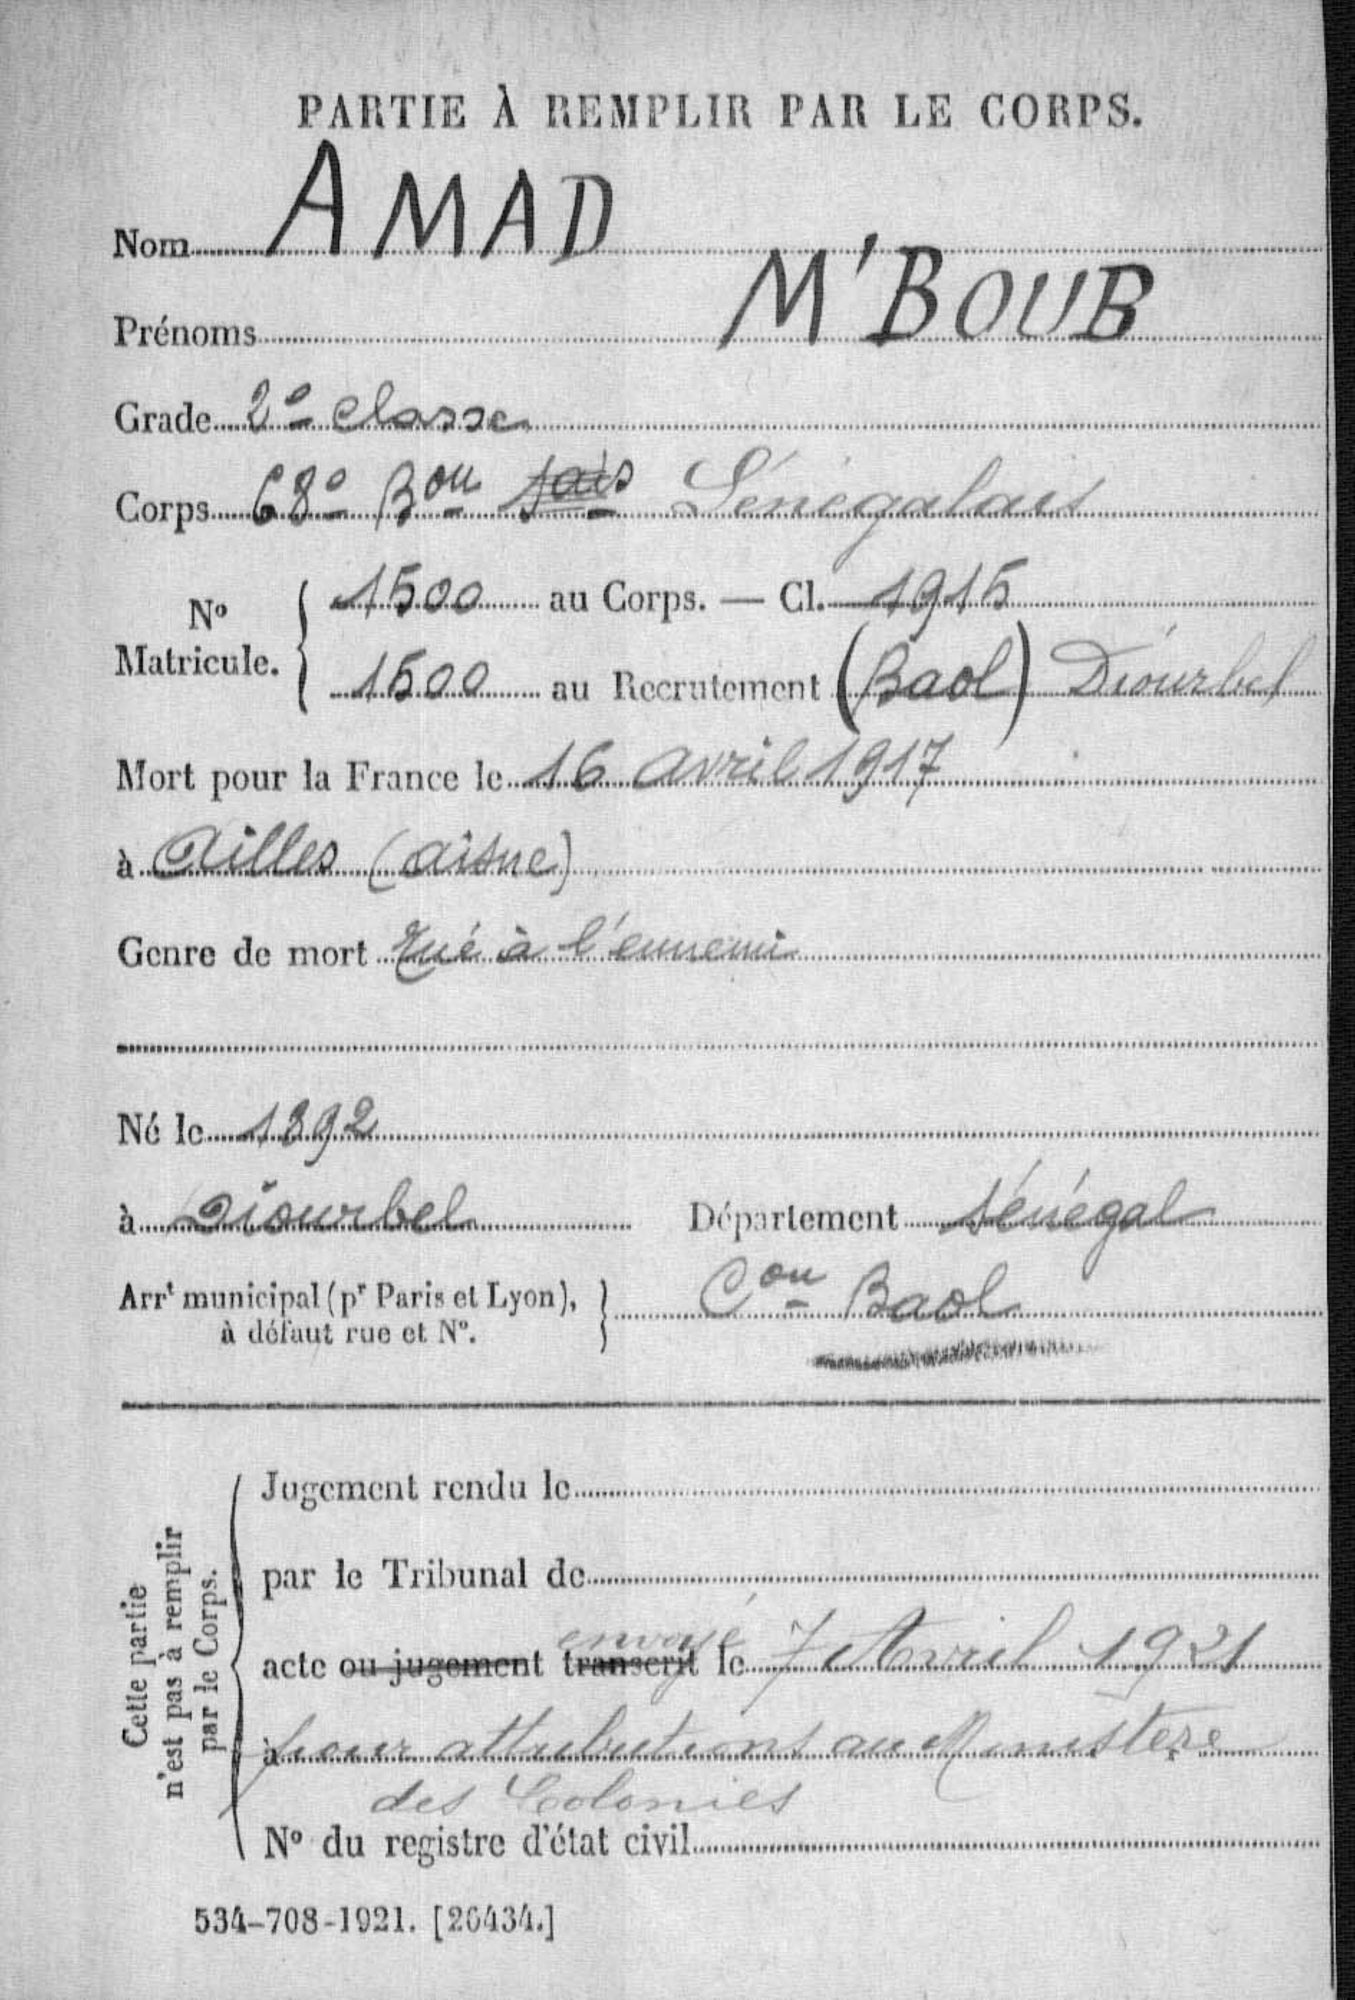 PARTIE À REMPLIR PAR LE CORPS.
Nom AMAD
Prénoms M'BOUB
Grade 2e classe
Corps 68e Bon Sais Sénégalais
No Matricule. 1500 au Corps. — Cl. 1915
1500 au Recrutement (Baol) Diourbel
Mort pour la France le 16 avril 1917
à Ailles (Aisne)
Genre de mort Tué à l'ennemi
Né le 1892
à Diourbel Département Sénégal
Arrt municipal (pr Paris et Lyon), à défaut rue et No. Con Baol
Cette partie n'est pas à remplir par le Corps.
Jugement rendu le
par le Tribunal de
acte ou jugement transcrit envoyé le 7 Avril 1921
à pour attributions au Ministère
des Colonies
No du registre d'état civil
534-708-1921. [26434.]